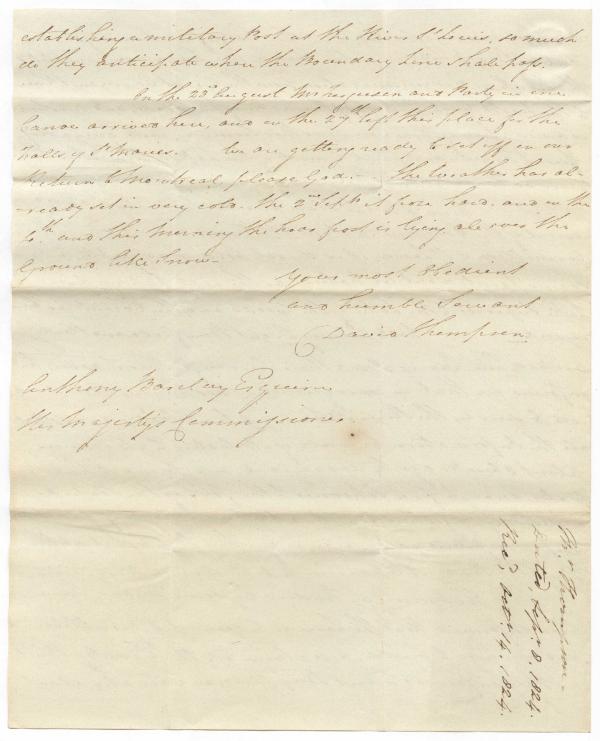 establishing a military Post at the River St Louis, so much
do they anticipate where the Boundary Line shall pass.
On the 23d August Mr Ferguson and Party in one
Canoe arrived here, and on the 27th left this place for the
Falls of St Maries. We are getting ready to set off on our
Return to Montreal please God. – The Weather has al-
-ready set in very cold. The 2nd Septr it froze hard. and on the
6th and this Morning the hoar frost is lying all over the
Ground like Snow –
Your most Obedient
and humble Servant
David Thompson
Anthony Barclay Esquire
His Majesty's Commissioner
Mr Thompson –
Dated, Sepr. 8. 1824.
Recd, Octr. 14. 1824.